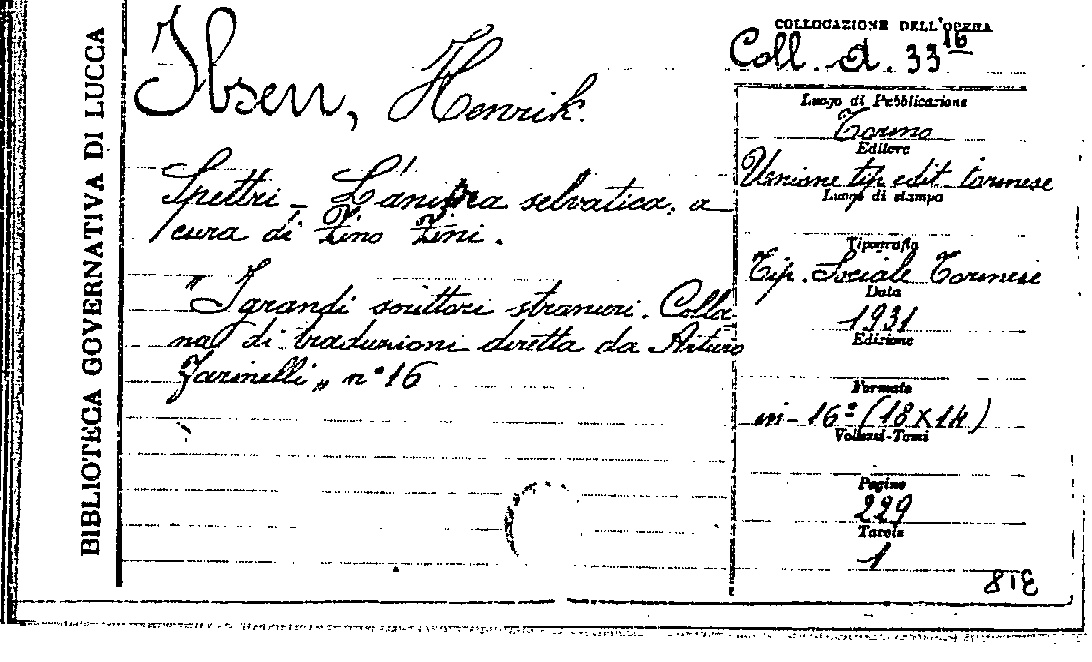 BIBLIOTECA GOVERNATIVA DI LUCCA
Ibsen, Henrik.
Spettri - L'anitra selvatica, a
cura di Zino Zini.
"I grandi scrittori stranieri. Colla
na di traduzioni diretta da Arturo
Farinelli" n° 16
COLLOCAZIONE DELL'OPERA
Coll. d. 33 16
Luogo di Pubblicazione
Torino
Editore
Unione tip. edit. torinese
Luogo di stampa
Tipografia
Tip. Sociale Torinese
Data
1931
Edizione
Formato
in-16° (18x14)
Volumi-Tomi
Pagine
229
Tavole
1